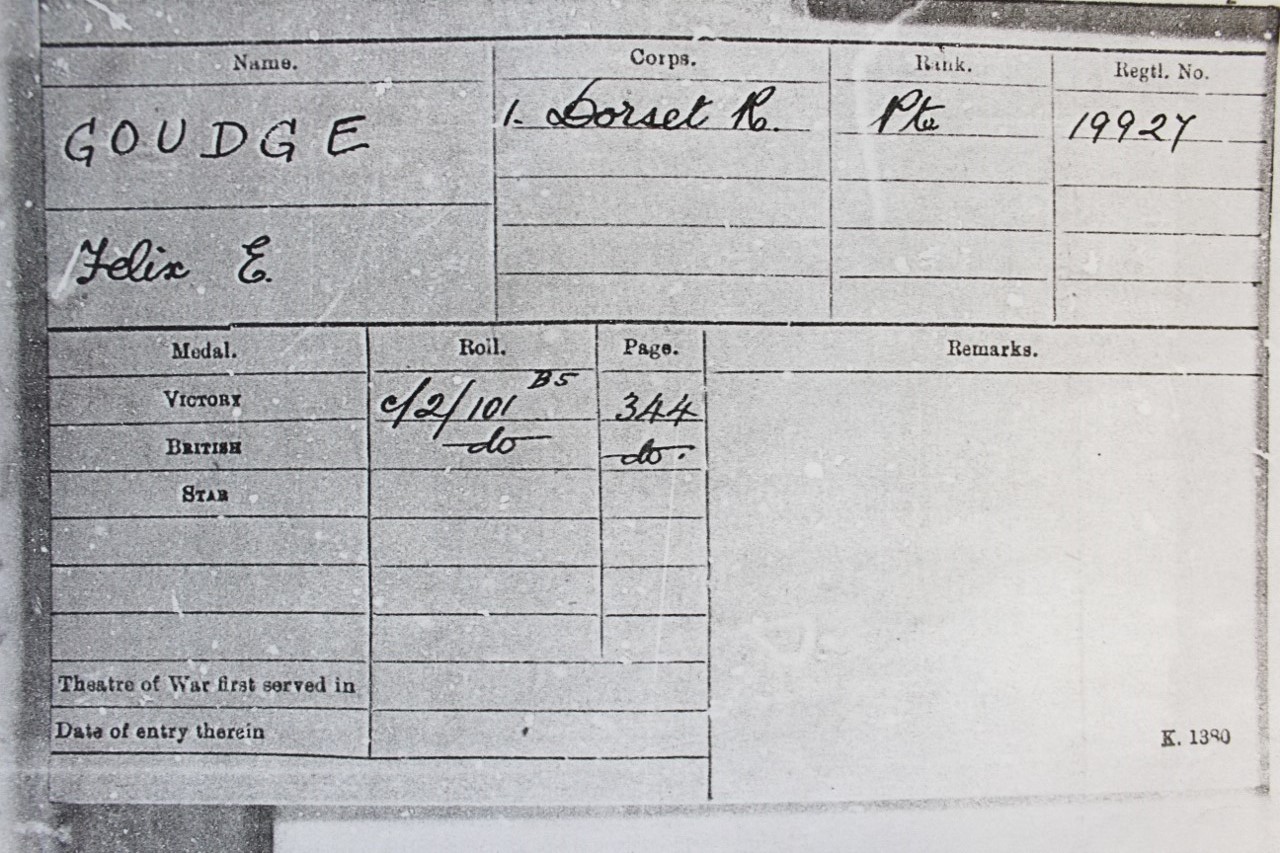 Name. Corps. Rank. Regtl. No.
GOUDGE 1. Dorset R. Pte 19927
Felix E.
Medal. Roll. Page. Remarks.
VICTORY C/2/101 B5 344
BRITISH do do.
STAR
Theatre of War first served in
Date of entry therein
K. 1380